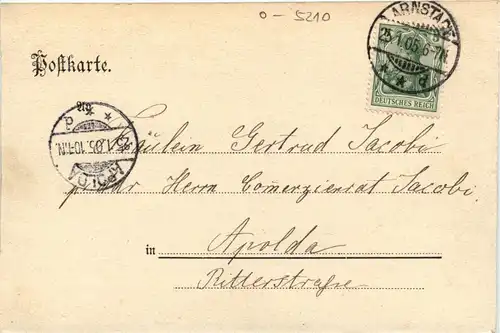 0-5210
Postkarte.
ARNSTADT
25.1.05.6-7N.
* * d
DEUTSCHES REICH
APOLDA
1.05.10-11N.
Fräulein Gertrud Jacobi
Herrn Comerzienrat Jacobi
in Apolda
Ritterstraße